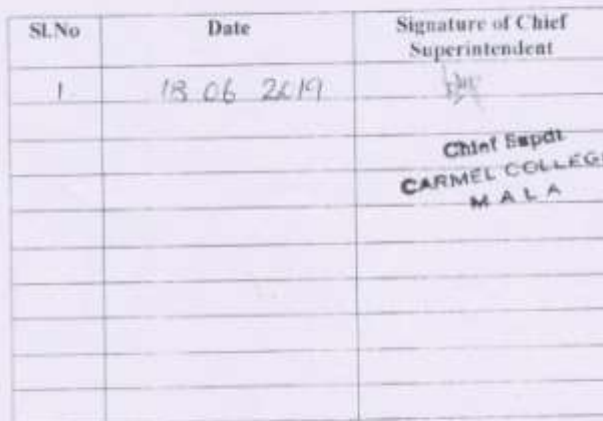 Sl.No Date Signature of Chief Superintendent
1 18 06 2019
Chief Supdt
CARMEL COLLEGE
MALA